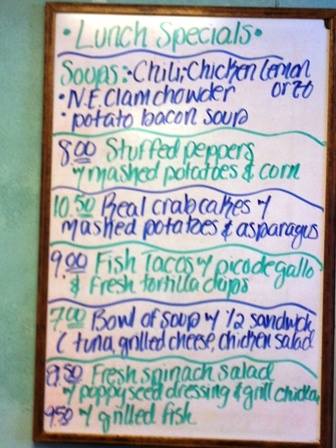 • Lunch Specials •
Soups: • Chili; Chicken lemon
orzo
• N.E. Clam chowder
• potato bacon soup
8.00 Stuffed peppers
w/ mashed potatoes & corn
10.50 Real crabcakes w/
mashed potatoes & asparagus
9.00 Fish Tacos w/ pico de gallo
& Fresh tortilla chips
7.00 Bowl of soup w/ 1/2 sandwich
( tuna, grilled cheese, chicken salad
8.50 Fresh spinach salad
w/ poppyseed dressing & grill chicken
9.50 w/ grilled fish